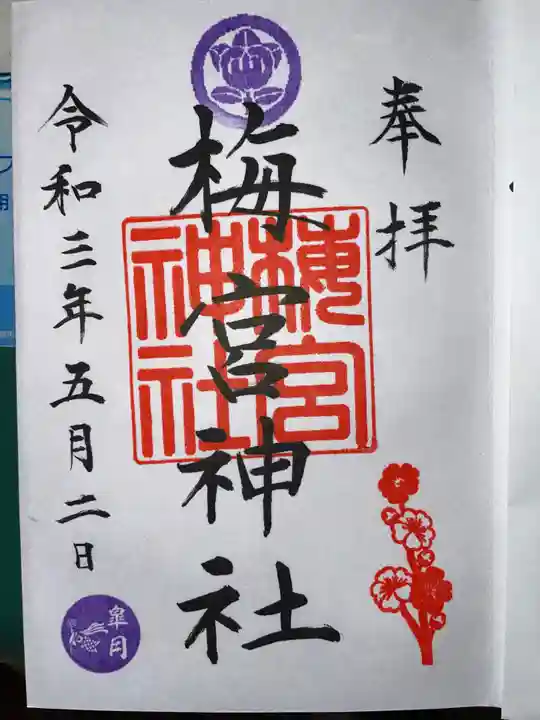 奉拝
梅宮神社
梅宮神社
令和三年五月二日
皐月
用